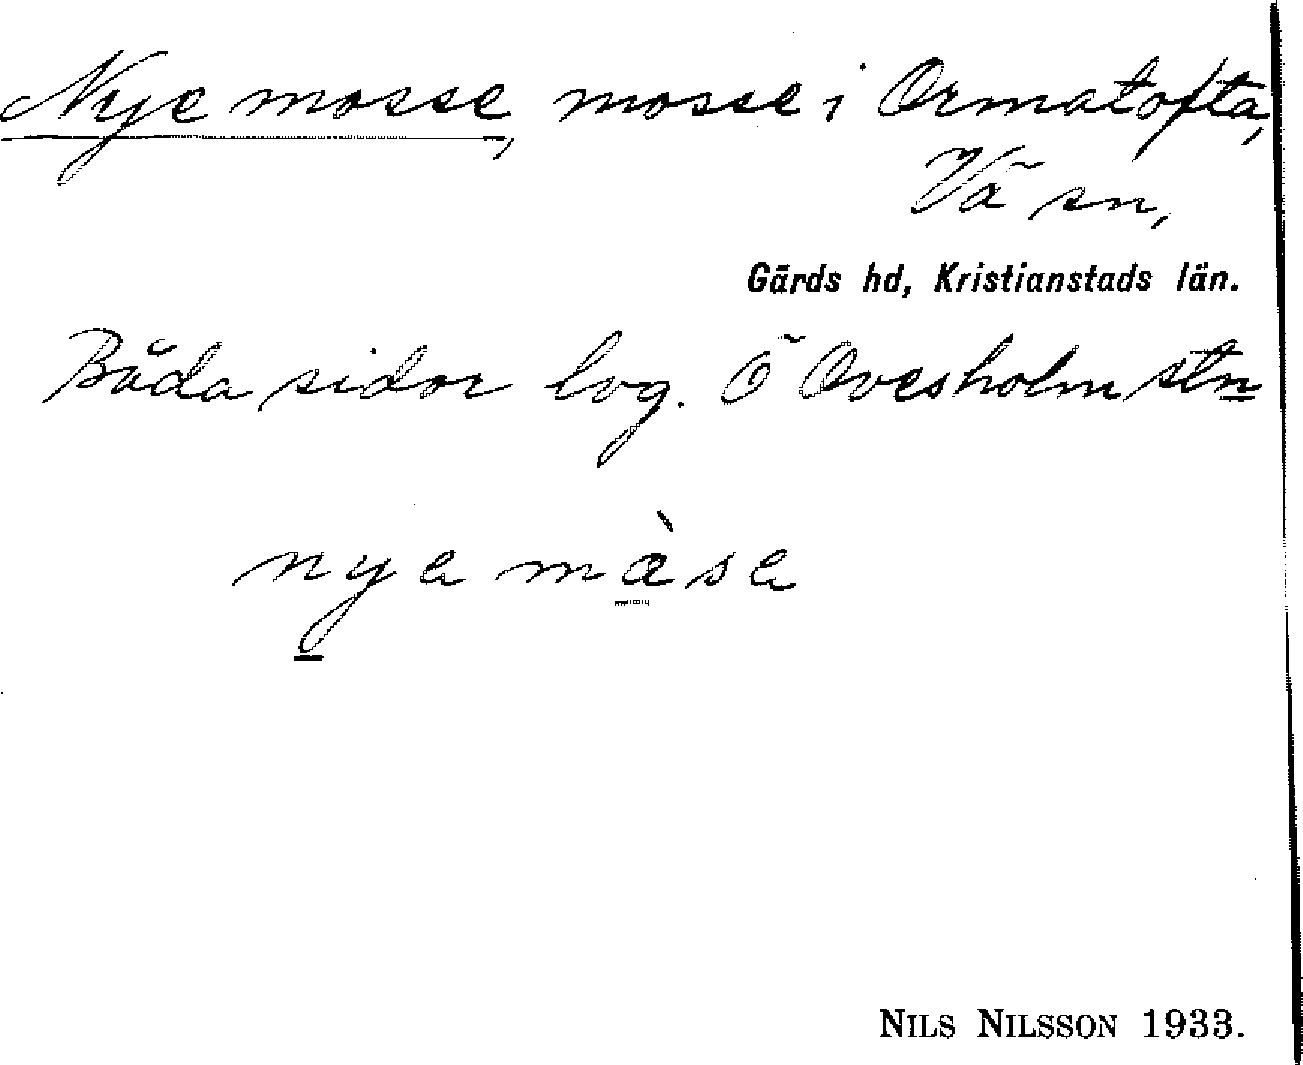 Nye mosse, mosse i Ormatofta,
Vä sn,
Gärds hd, Kristianstads län.
Båda sidor lvg. Ö Ovesholm stn
nya màsa
NILS NILSSON 1933.